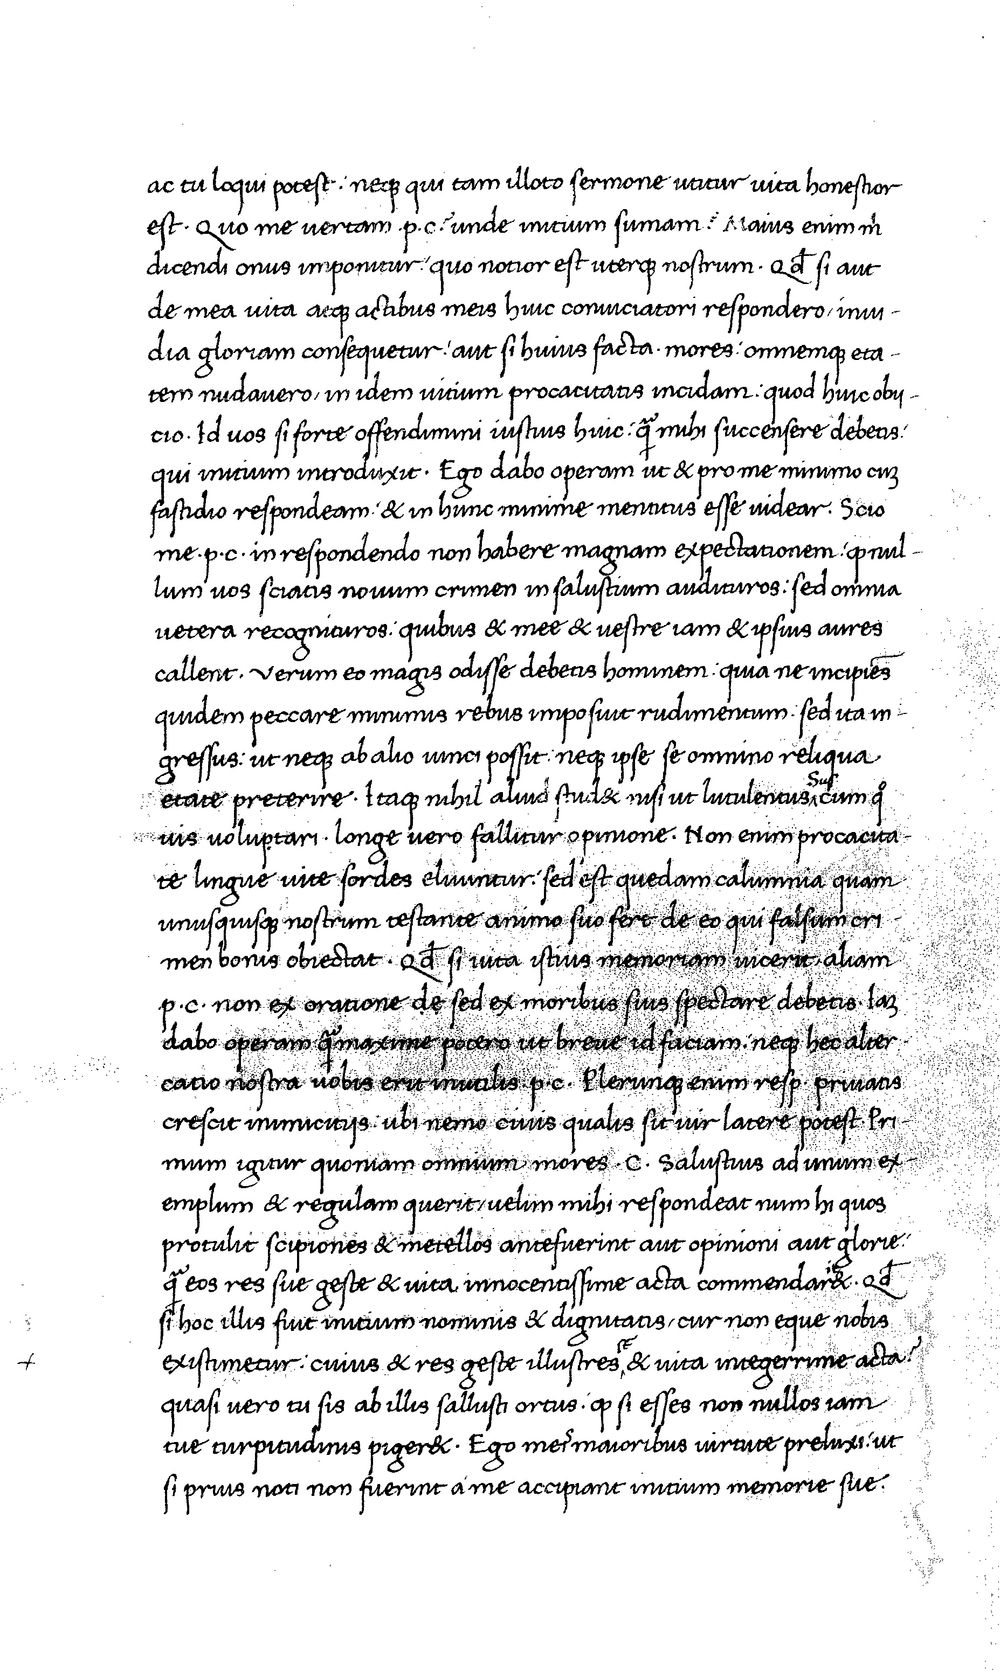 ac tu loqui potest: neqꝫ qui tam illoto sermone utitur uita honestior
est. Quo me uertam .p.c.? unde initium sumam? Maius enim m̄
dicendi onus imponitur: quo notior est uterqꝫ nostrum. Qd̄ si aut
de mea uita atqꝫ actibus meis huic conuiciatori respondero, inui-
dia gloriam consequetur: aut si huius facta. mores: omnemqꝫ eta-
tem nudauero, in idem uitium procacitatis incidam: quod huic obij-
cio. Id uos si forte offendimini iustius huic: q̃ mihi succensere debetis:
qui initium introduxit. Ego dabo operam ut & pro me minimo cuꝫ
fastidio respondeam: & in hunc minime mentitus esse uidear. Scio
me .p.c. in respondendo non habere magnam expectationem: ꝙ nul-
lum uos sciatis nouum crimen in salustium audituros: sed omnia
uetera recognituros: quibus & mee & uestre iam & ipsius aures
callent. Verum eo magis odisse debetis hominem: quia ne incipiēs
quidem peccare minimis rebus imposuit rudimentum. sed ita in-
gressus: ut neqꝫ ab alio uinci possit. neqꝫ ipse se omnino reliqua
etate preterire. Itaqꝫ nihil aliud stud& nisi ut lutulentus Sus cum qͦ
uis uoluptari. longe uero fallitur opinione. Non enim procacita-
te lingue uite sordes eluuntur: sed est quedam calumnia quam
unusquisqꝫ nostrum testante animo suo fert de eo qui falsum cri-
men bonis obiectat. Qd̄ si uita istius memoriam uicerit, aliam
p.c. non ex oratione de sed ex moribus suis spectare debetis. Iaꝫ
dabo operam q̃ maxime potero ut breue id faciam. neqꝫ hec alter
catio nostra uobis erit inutilis .p.c. Plerunqꝫ enim resp. priuatis
crescit inimicitijs. ubi nemo ciuis qualis sit uir latere potest. Pri-
mum igitur quoniam omnium mores .C. Salustius ad unum ex-
emplum & regulam querit, uelim mihi respondeat num hi quos
protulit scipiones & metellos antefuerint aut opinioni aut glorie:
q̃ eos res sue geste & uita innocentissime acta commendar&. Qd̄
si hoc illis fuit initium nominis & dignitatis, cur non eque nobis
existimetur: cuius & res geste illustres, & uita integerrime acta?
quasi uero tu sis ab illis sallusti ortus. ꝙ si esses non nullos iam
tue turpitudinis piger&. Ego meis maioribus uirtute preluxi: ut
si prius noti non fuerint a me accipiant initium memorie sue.